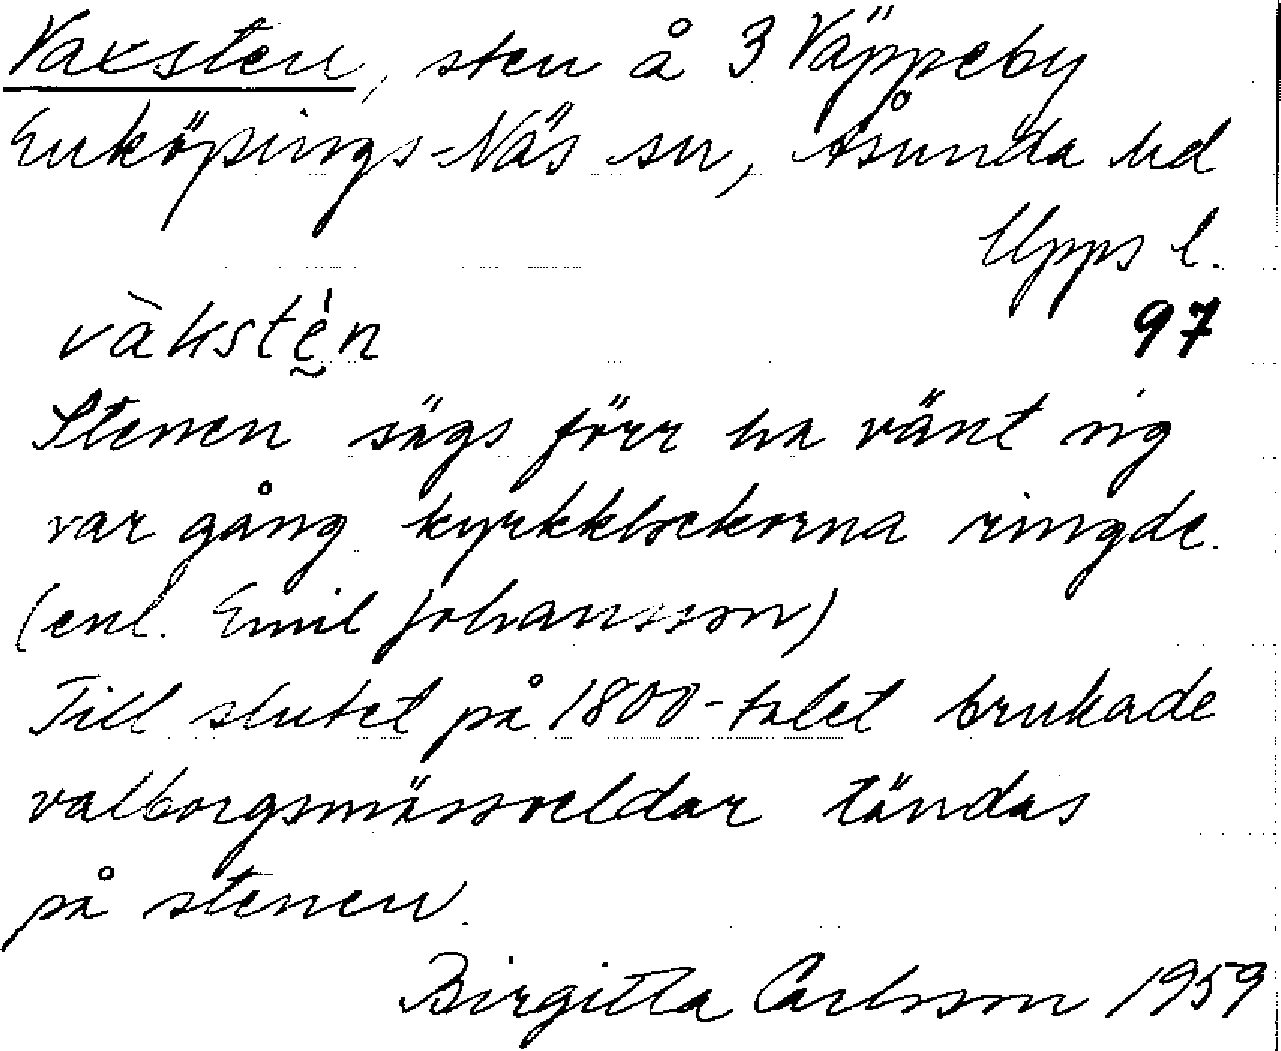 Vaxsten, sten å 3 Väppeby
Enköpings-Näs sn, Åsunda hd
Upps l.
vàkstḛ̀n
97
Stenen sägs förr ha vänt sig
var gång kyrkklockorna ringde.
(enl. Emil Johansson)
Till slutet på 1800-talet brukade
valborgsmässoeldar tändas
på stenen.
Birgitta Carlsson 1959